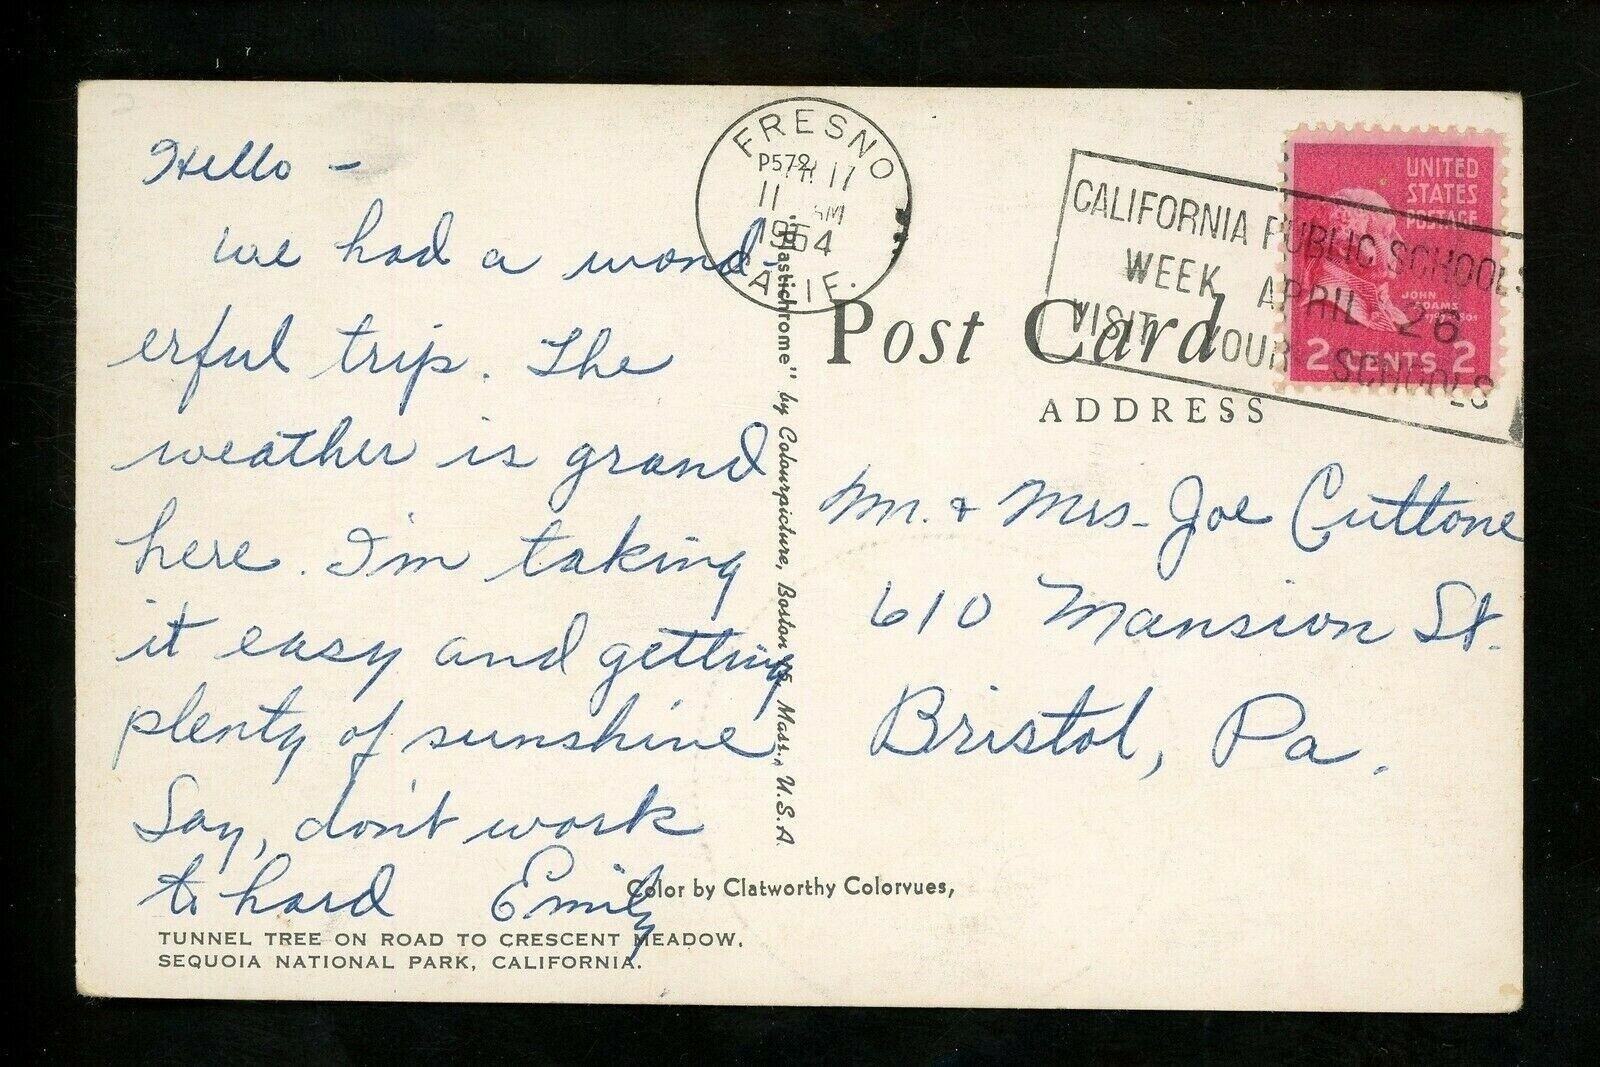 Hello -
we had a wond-
erful trip. The
weather is grand
here. I'm taking
it easy and getting
plenty of sunshine
Say, don't work
to hard Emily
TUNNEL TREE ON ROAD TO CRESCENT MEADOW,
SEQUOIA NATIONAL PARK, CALIFORNIA.
Color by Clatworthy Colorvues,
"Plastichrome" by Colourpicture, Boston 15, Mass., U.S.A.
FRESNO
11
1954
CALIF.
CALIFORNIA PUBLIC SCHOOLS
WEEK APRIL 26
VISIT YOUR SCHOOLS
UNITED
STATES
POSTAGE
JOHN
ADAMS
2 CENTS 2
Post Card
ADDRESS
Mr. & Mrs. Joe Cuttone
610 Mansion St.
Bristol, Pa.